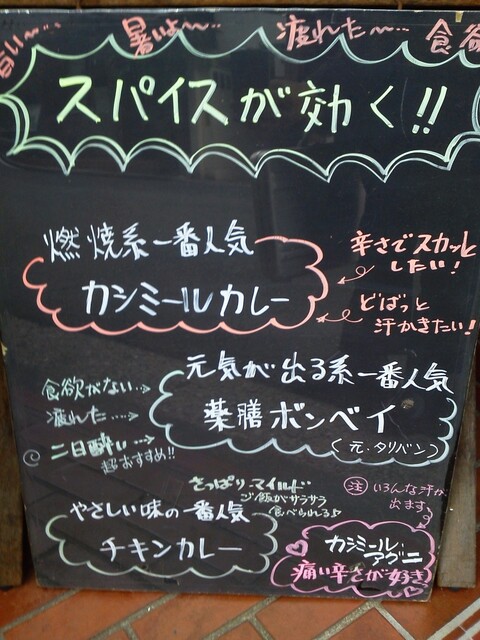 暑いよ〜〜… 疲れた〜〜… 食欲
スパイスが効く!!
燃焼系一番人気
カシミールカレー
辛さでスカッと
したい!
どばっと
汗かきたい!
元気が出る系一番人気
薬膳ボンベイ
(元・タリバン)
食欲がない…>
疲れた…>
二日酔い…>
超おすすめ!!
さっぱりマイルド
ご飯がサラサラ
食べられる♪
やさしい味の一番人気
チキンカレー
注 いろんな汗が
出ます
カシミール・
アグニ
痛い辛さが好き